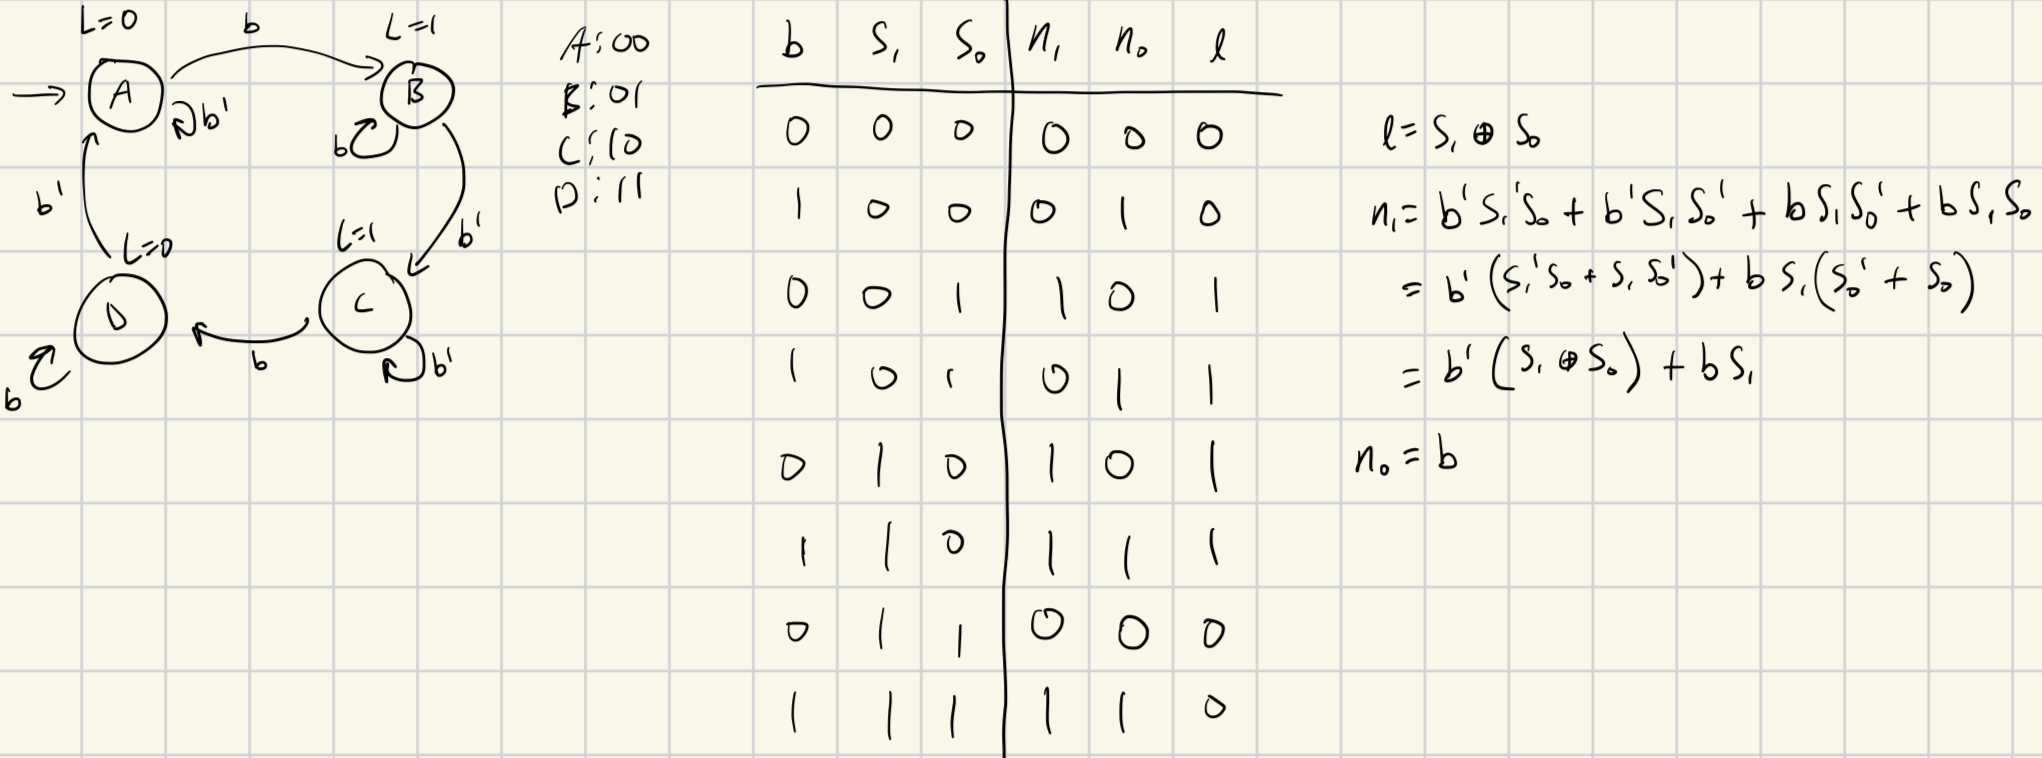 L=0
b
L=1
A
B
b'
b
b'
b'
L=0
L=1
D
C
b
b'
b
A:00
B:01
C:10
D:11
b S₁ S₀ n₁ n₀ l
0 0 0 0 0 0
1 0 0 0 1 0
0 0 1 1 0 1
1 0 1 0 1 1
0 1 0 1 0 1
1 1 0 1 1 1
0 1 1 0 0 0
1 1 1 1 1 0
l = S₁ ⊕ S₀
n₁ = b'S₁'S₀ + b'S₁S₀' + bS₁S₀' + bS₁S₀
= b'(S₁'S₀ + S₁S₀') + bS₁(S₀' + S₀)
= b'(S₁ ⊕ S₀) + bS₁
n₀ = b